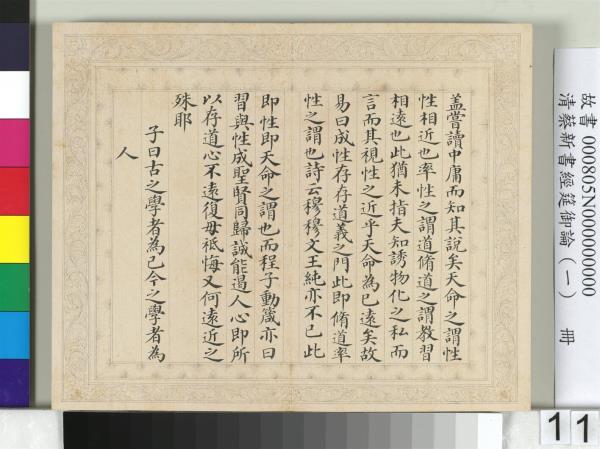 蓋嘗讀中庸而知其說矣天命之謂性
性相近也率性之謂道脩道之謂教習
相遠也此猶未指夫知誘物化之私而
言而其視性之近乎天命為已遠矣故
易曰成性存存道義之門此即脩道率
性之謂也詩云穆穆文王純亦不已此
即性即天命之謂也而程子動箴亦曰
習與性成聖賢同歸誠能遏人心即所
以存道心不遠復毋祗悔又何遠近之
殊耶
子曰古之學者為己今之學者為
人
故書 000805N000000000
清蔡新書經筵御論(一) 冊
11